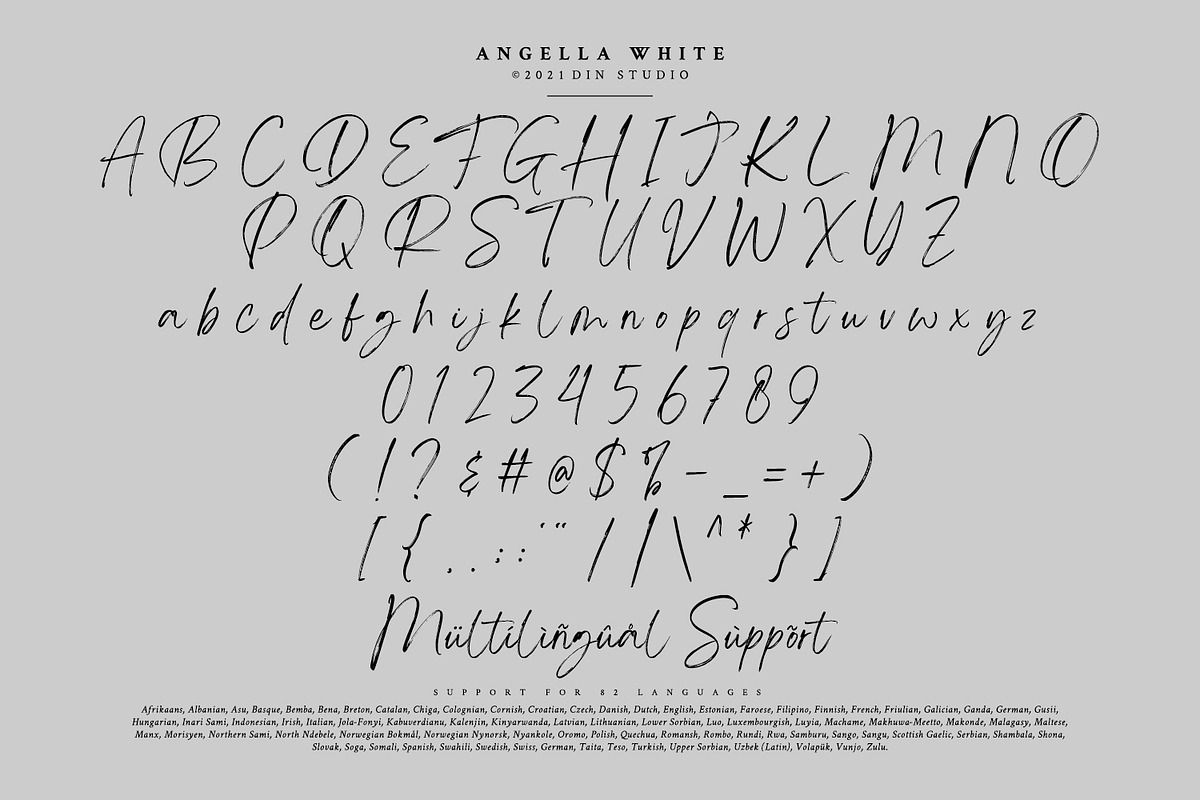 ANGELLA WHITE
©2021 DIN STUDIO
A B C D E F G H I J K L M N O
P Q R S T U V W X Y Z
a b c d e f g h i j k l m n o p q r s t u v w x y z
0 1 2 3 4 5 6 7 8 9
( ! ? & # @ $ % - _ = + )
[ { , . ; : ' " / | \ ^ * } ]
Mültílìñgûål Sùppõrt
SUPPORT FOR 82 LANGUAGES
Afrikaans, Albanian, Asu, Basque, Bemba, Bena, Breton, Catalan, Chiga, Colognian, Cornish, Croatian, Czech, Danish, Dutch, English, Estonian, Faroese, Filipino, Finnish, French, Friulian, Galician, Ganda, German, Gusii,
Hungarian, Inari Sami, Indonesian, Irish, Italian, Jola-Fonyi, Kabuverdianu, Kalenjin, Kinyarwanda, Latvian, Lithuanian, Lower Sorbian, Luo, Luxembourgish, Luyia, Machame, Makhuwa-Meetto, Makonde, Malagasy, Maltese,
Manx, Morisyen, Northern Sami, North Ndebele, Norwegian Bokmål, Norwegian Nynorsk, Nyankole, Oromo, Polish, Quechua, Romansh, Rombo, Rundi, Rwa, Samburu, Sango, Sangu, Scottish Gaelic, Serbian, Shambala, Shona,
Slovak, Soga, Somali, Spanish, Swahili, Swedish, Swiss, German, Taita, Teso, Turkish, Upper Sorbian, Uzbek (Latin), Volapük, Vunjo, Zulu.